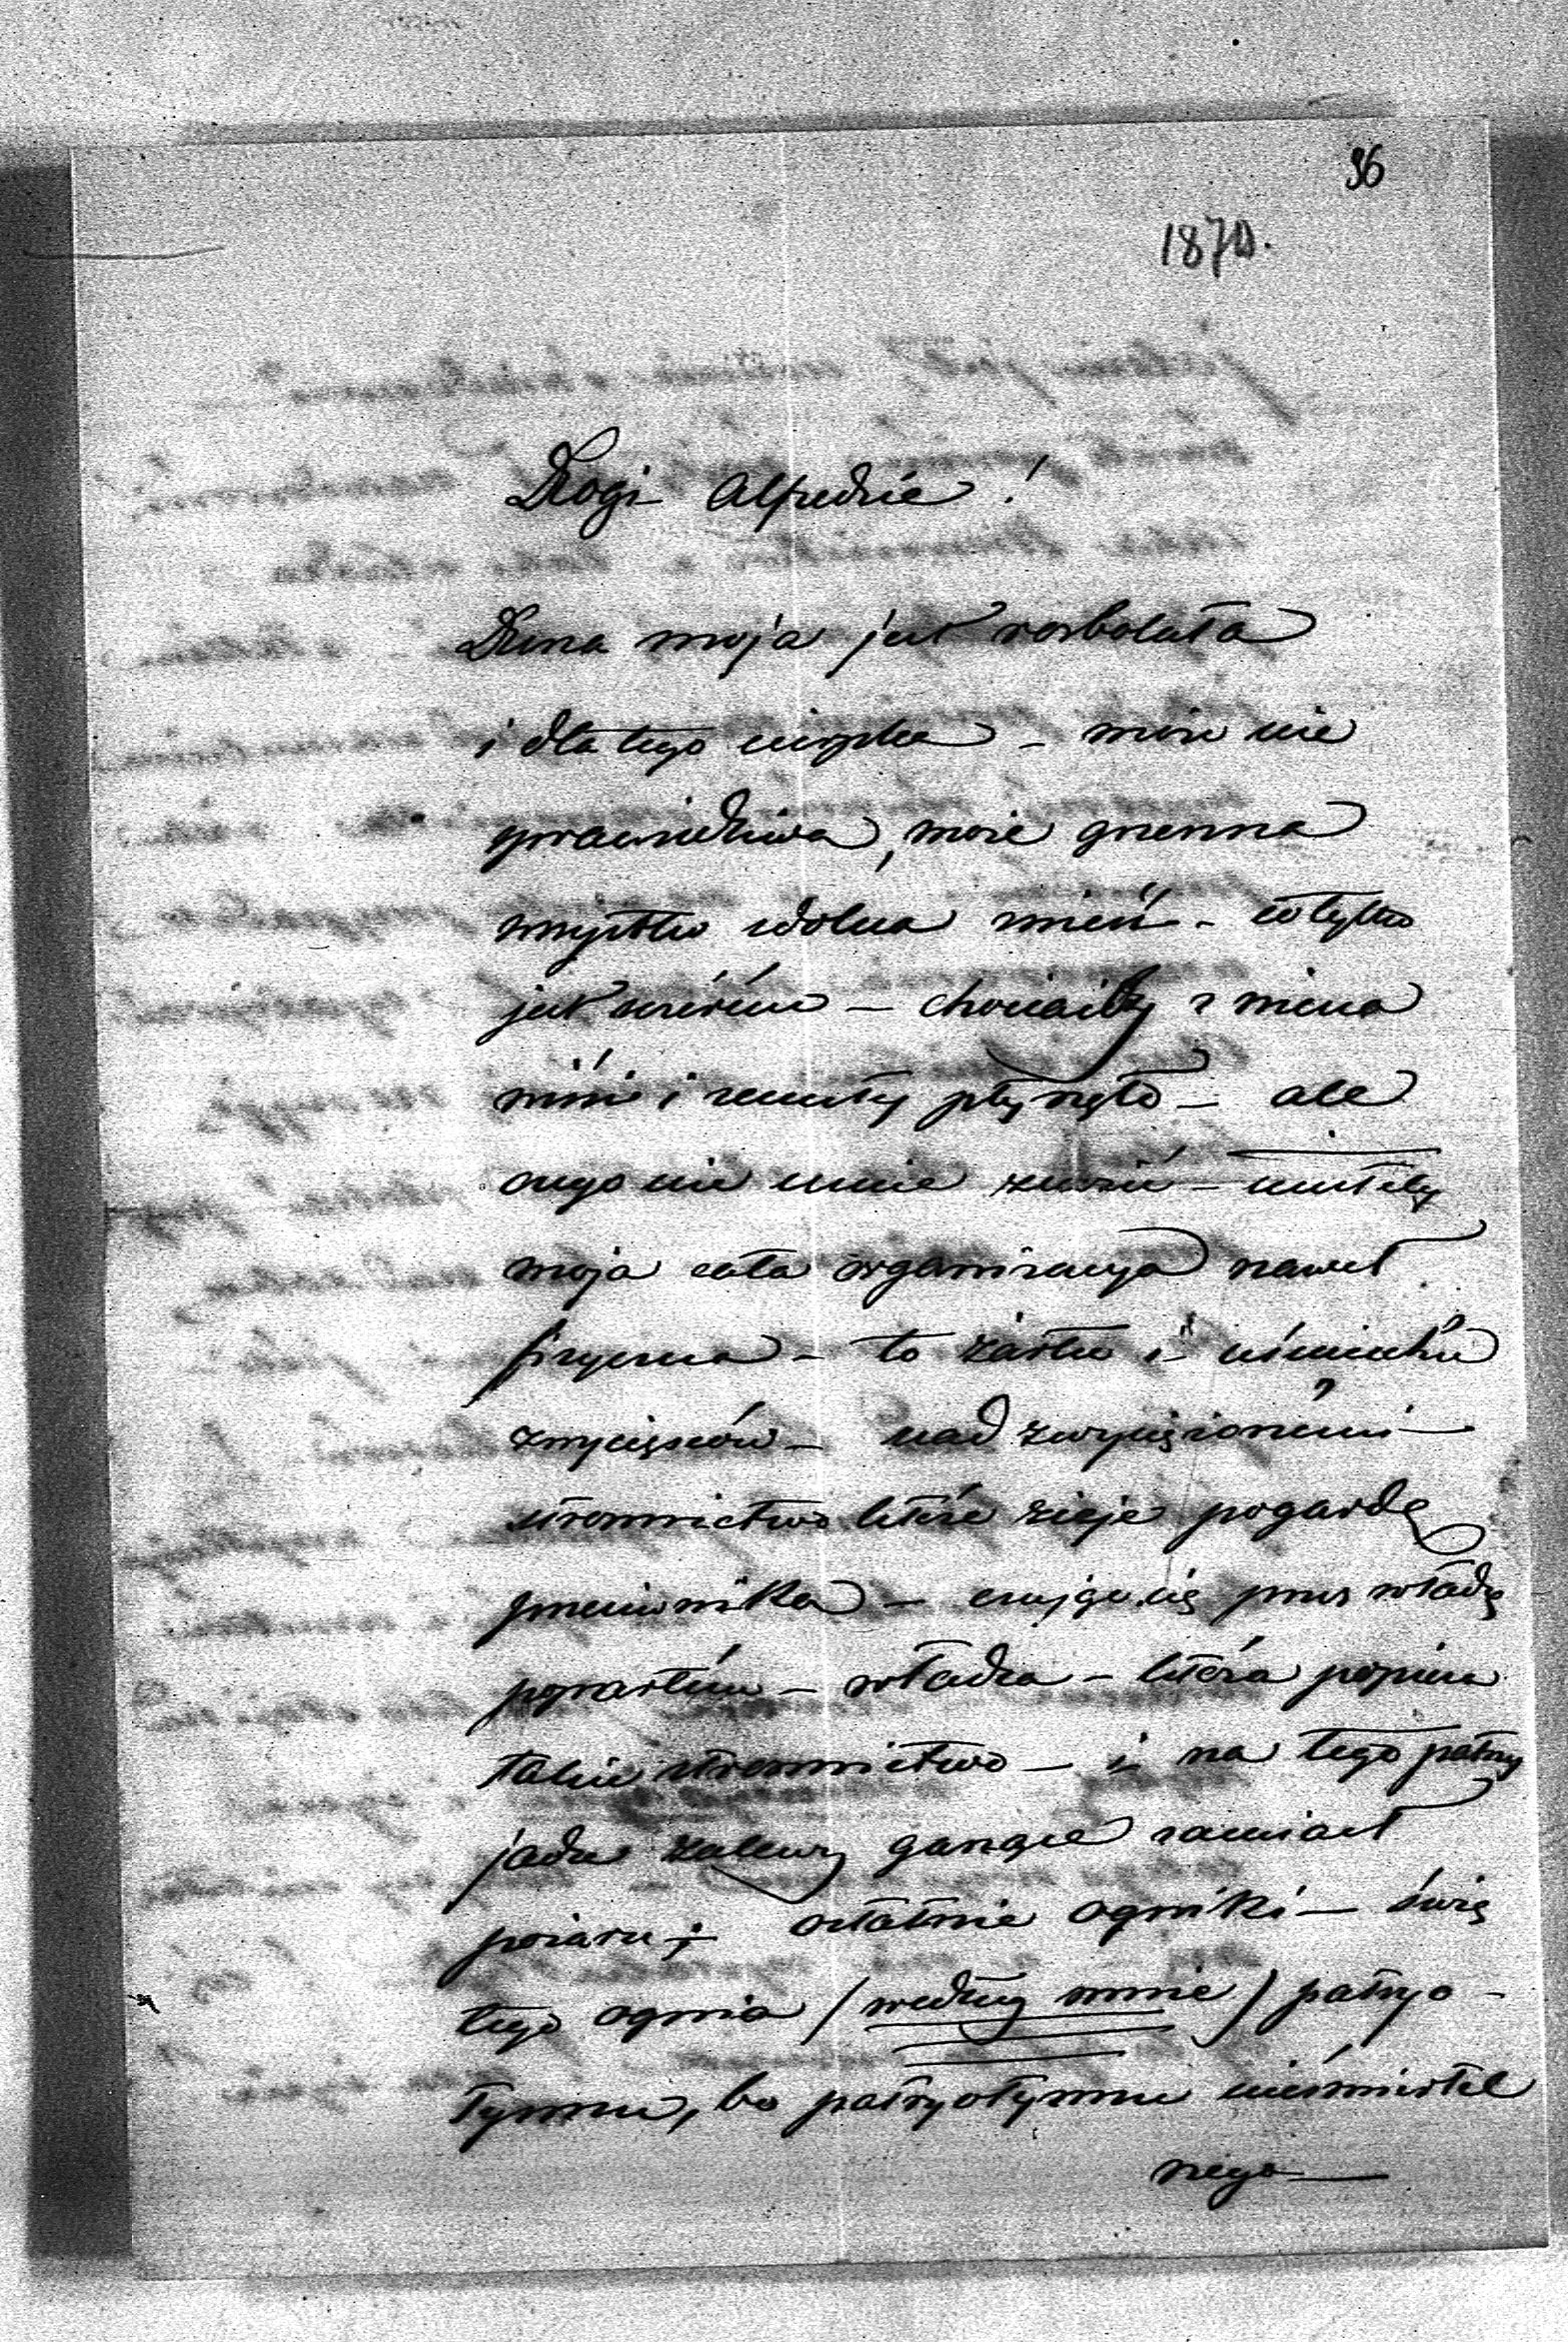 96
1870.
Drogi Alfredzie!
Duma moja jest rozbolała
i dla tego cierpka – może nie
sprawiedliwa, może grzeszna
wszystko zdolna znieść – co tylko
jest szczérém – chociażby z niena
wiści i zemsty płynęło – ale
czego nie umie znieść – untéby
moja cała organizacya nawet
fizyczna – to żartu i uśmiechu
zwycięzców – nad zwyciężonémi –
stronnictwo które zieje pogardę
przeciwnika – czując się przez władzę
popartém – władza – która popiera
takie stronnictwo – i na tego patrzy
jadu zalewy gasząc zamiast
pożaru; ostatnie ogniki – świę
tego ognia (według mnie) patryo-
tyzmu, bo patryotyzmu nieśmiertel
nego –